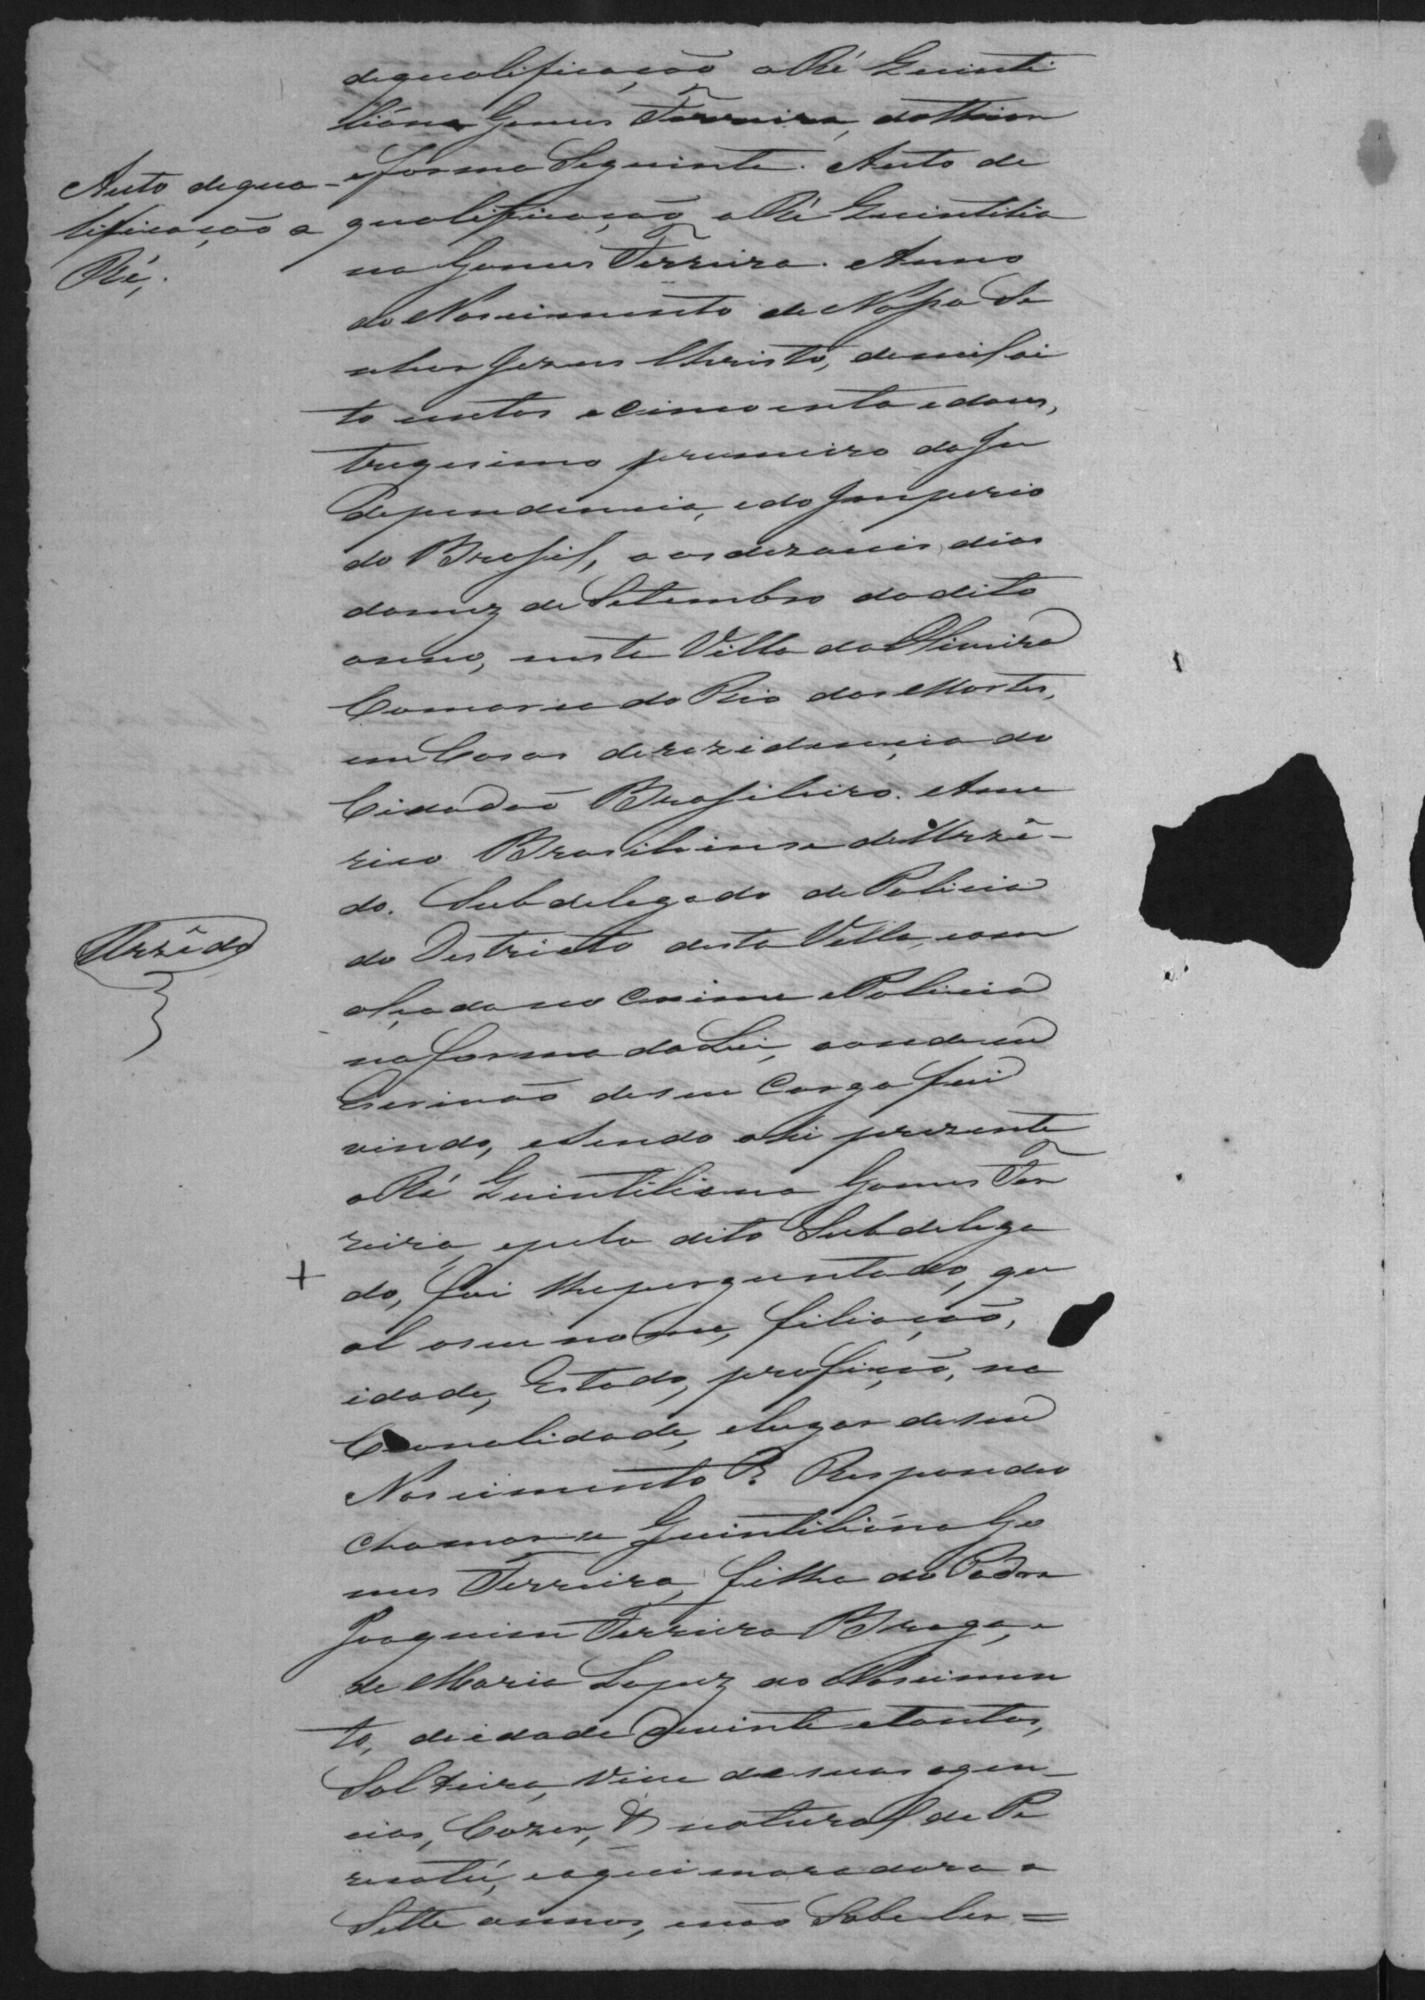 de qualificação a Ré Quinti
liána Gomes Ferreira, da
Auto de qua-
lificação a
Ré,.
forma Seguinte. Auto de
qualificação a Ré Quintilia
na Gomes Ferreira. Anno
do Nascimento de Nosso Se
nhor Jezus Christo, de mil oi
to centos e cincoenta e dous,
trigesimo primeiro da In
dependencia, e do Imperio
do Brasil, a os dezaceis dias
do mez de Setembro do dito
anno, nesta Villa da Oliveira
Comarca do Rio das Mortes,
em Casas de rezidencia do
Cidadão Brasileiro. Ame
rico Brasiliense de Urzê-
do. Subdelegado de Policia
Urzêdo
do Destricto desta Villa, com
alçada no Crime e Policia
na forma da Lei, aonde eu
Escrivão de seu Cargo fui
vindo, e sendo ahi prezente
a Ré Quintiliana Gomes Fer
reira, e pelo dito Subdelega
+
do, foi lhe perguntado, qu
al o seu nome, filiação,
idade, Estado, profição, na
Cionalidade, e lugar de seu
Nascimento? Respondeo
chamar se Quintiliána Go
mes Ferreira, filha do Padre
Joaquim Ferreira Braga, e
de Maria Lopez do Nascimen
to, de idade de vinte e tantos,
Solteira, vive de suas agen-
cias, Cozer, & natural de
e aqui moradora a
Sette annos, e não Sabe ler =